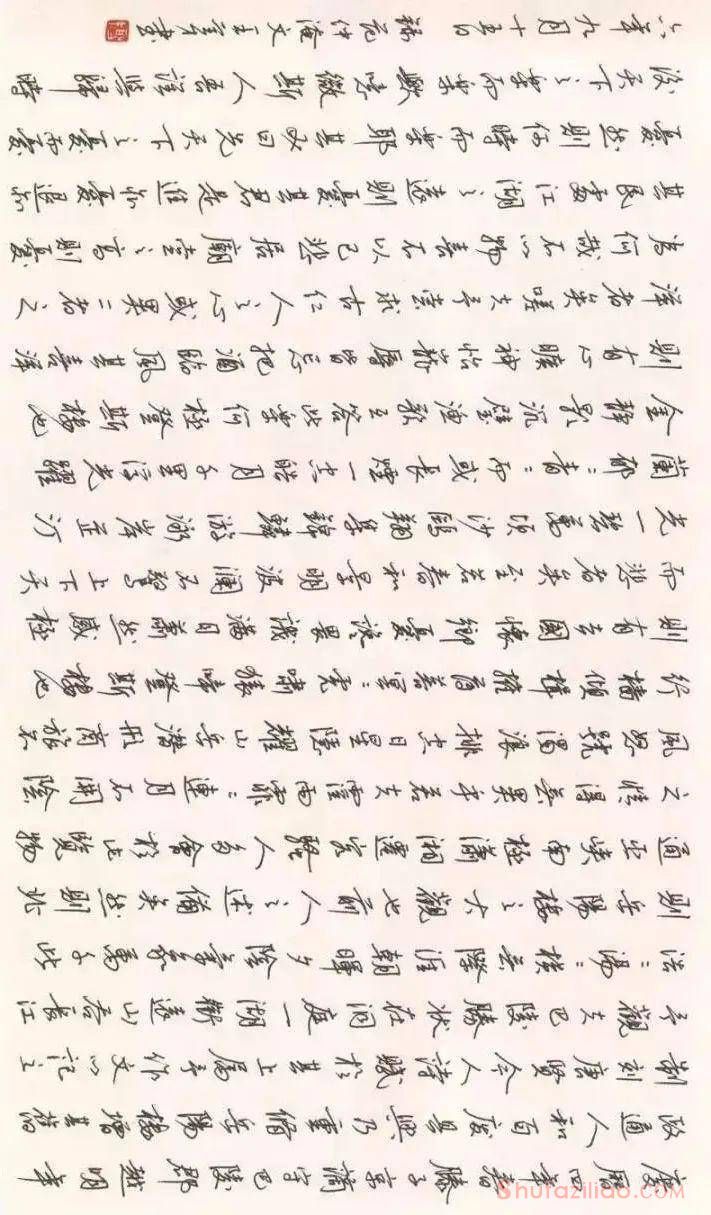 慶曆四年春滕子京謫守巴陵郡越明年
政通人和百廢具興乃重修岳陽樓增其舊
制刻唐賢今人詩賦於其上屬予作文以記之
予觀夫巴陵勝狀在洞庭一湖銜遠山吞長江
浩=湯=橫無際涯朝暉夕陰氣象萬千此
則岳陽樓之大觀也前人之述備矣然則北
通巫峽南極瀟湘遷客騷人多會於此覽物
之情得無異乎若夫霪雨霏=連月不開陰
風怒號濁浪排空日星隱耀山岳潛形商旅不
行檣傾楫摧薄暮冥=虎嘯猿啼登斯樓也
則有去國懷鄉憂讒畏譏滿目蕭然感極
而悲者矣至若春和景明波瀾不驚上下天
光一碧萬頃沙鷗翔集錦鱗游泳岸芷汀
蘭郁=青=而或長煙一空皓月千里浮光躍
金靜影沉璧漁歌互答此樂何極登斯樓也
則有心曠神怡寵辱皆忘把酒臨風其喜洋
洋者矣嗟夫予嘗求古仁人之心或異二者之
為何哉不以物喜不以己悲居廟堂之高則憂
其民處江湖之遠則憂其君是進亦憂退亦
憂然則何時而樂耶其必曰先天下之憂而憂
後天下之樂而樂歟噫微斯人吾誰與歸時
六年九月十五日 錄范仲淹文 書
Shufaziliao.com